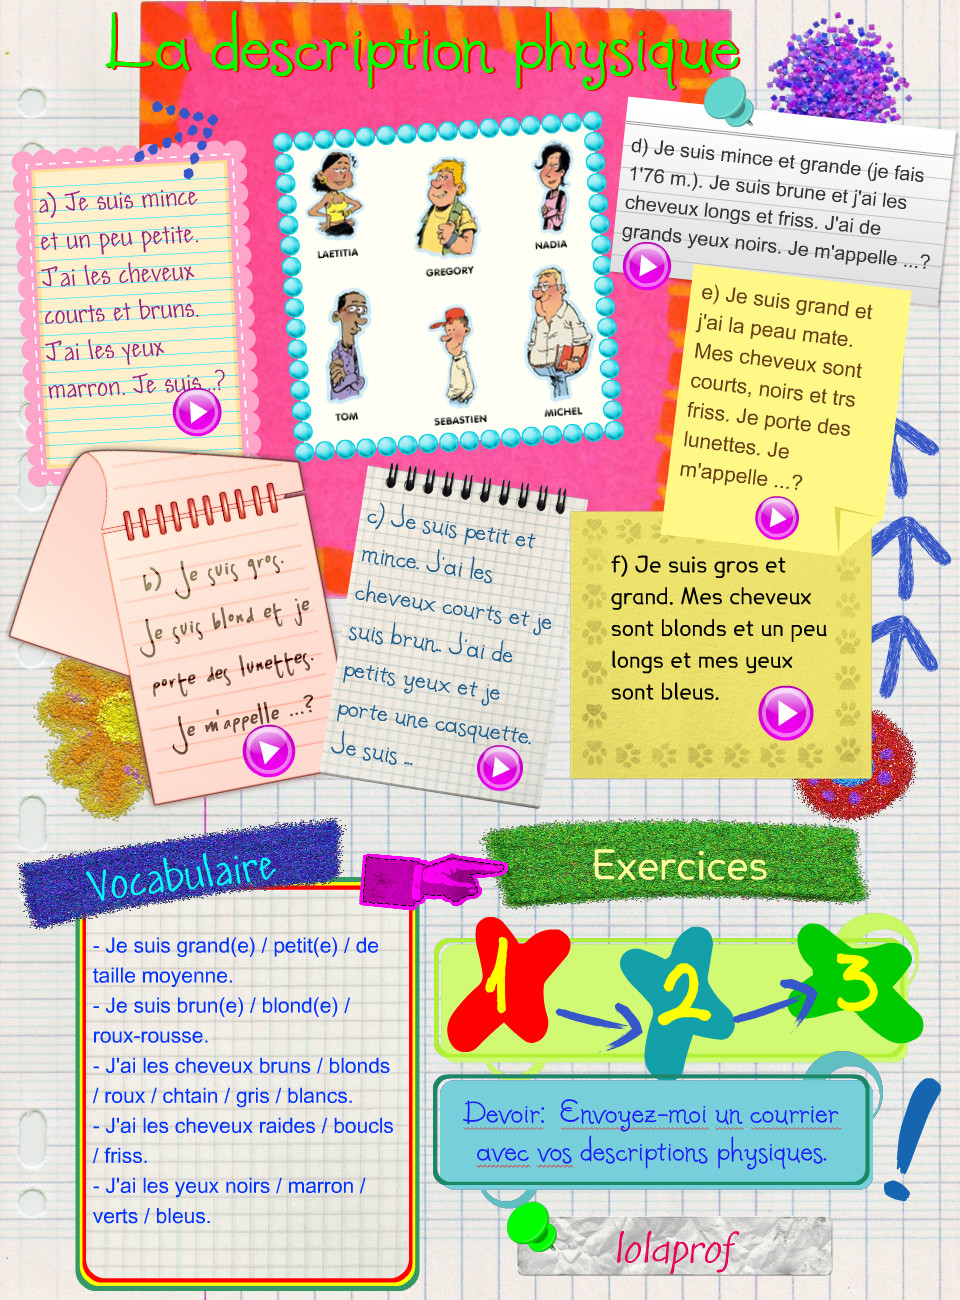 La description physique
a) Je suis mince
et un peu petite.
J'ai les cheveux
courts et bruns.
J'ai les yeux
marron. Je suis...?
LAETITIA
GREGORY
NADIA
TOM
SEBASTIEN
MICHEL
d) Je suis mince et grande (je fais
1'76 m.). Je suis brune et j'ai les
cheveux longs et friss. J'ai de
grands yeux noirs. Je m'appelle ...?
e) Je suis grand et
j'ai la peau mate.
Mes cheveux sont
courts, noirs et trs
friss. Je porte des
lunettes. Je
m'appelle ...?
b) Je suis gros.
Je suis blond et je
porte des lunettes.
Je m'appelle ...?
c) Je suis petit et
mince. J'ai les
cheveux courts et je
suis brun.. J'ai de
petits yeux et je
porte une casquette.
Je suis ...
f) Je suis gros et
grand. Mes cheveux
sont blonds et un peu
longs et mes yeux
sont bleus.
Vocabulaire
- Je suis grand(e) / petit(e) / de
taille moyenne.
- Je suis brun(e) / blond(e) /
roux-rousse.
- J'ai les cheveux bruns / blonds
/ roux / chtain / gris / blancs.
- J'ai les cheveux raides / boucls
/ friss.
- J'ai les yeux noirs / marron /
verts / bleus.
Exercices
1 2 3
Devoir: Envoyez-moi un courrier
avec vos descriptions physiques.
!
lolaprof